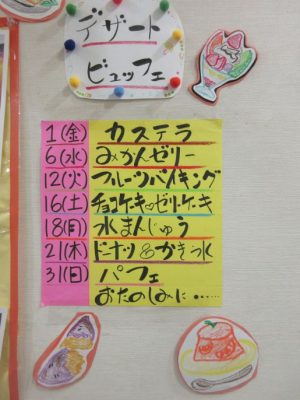 デザート
ビュッフェ
1(金) カステラ
6(水) みかんゼリー
12(火) フルーツバイキング
16(土) チョコケーキ♡ゼリーケーキ
18(月) 水まんじゅう
21(木) ドーナツ&かき氷
31(日) パフェ
おたのしみに……